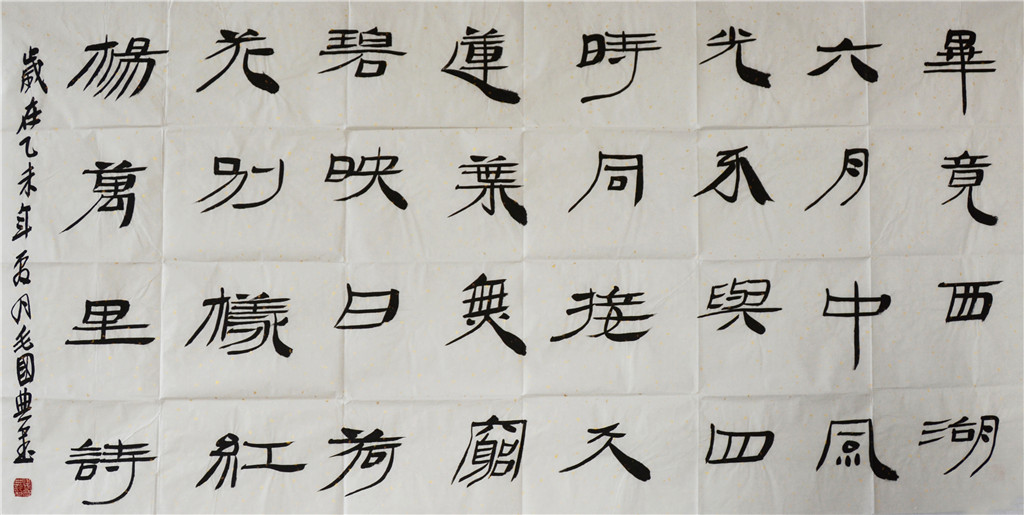 畢竟西湖
六月中風
光不與四
時同接天
蓮葉無窮
碧映日荷
花別樣紅
楊萬里詩
歲在乙未年夏月毛國典書